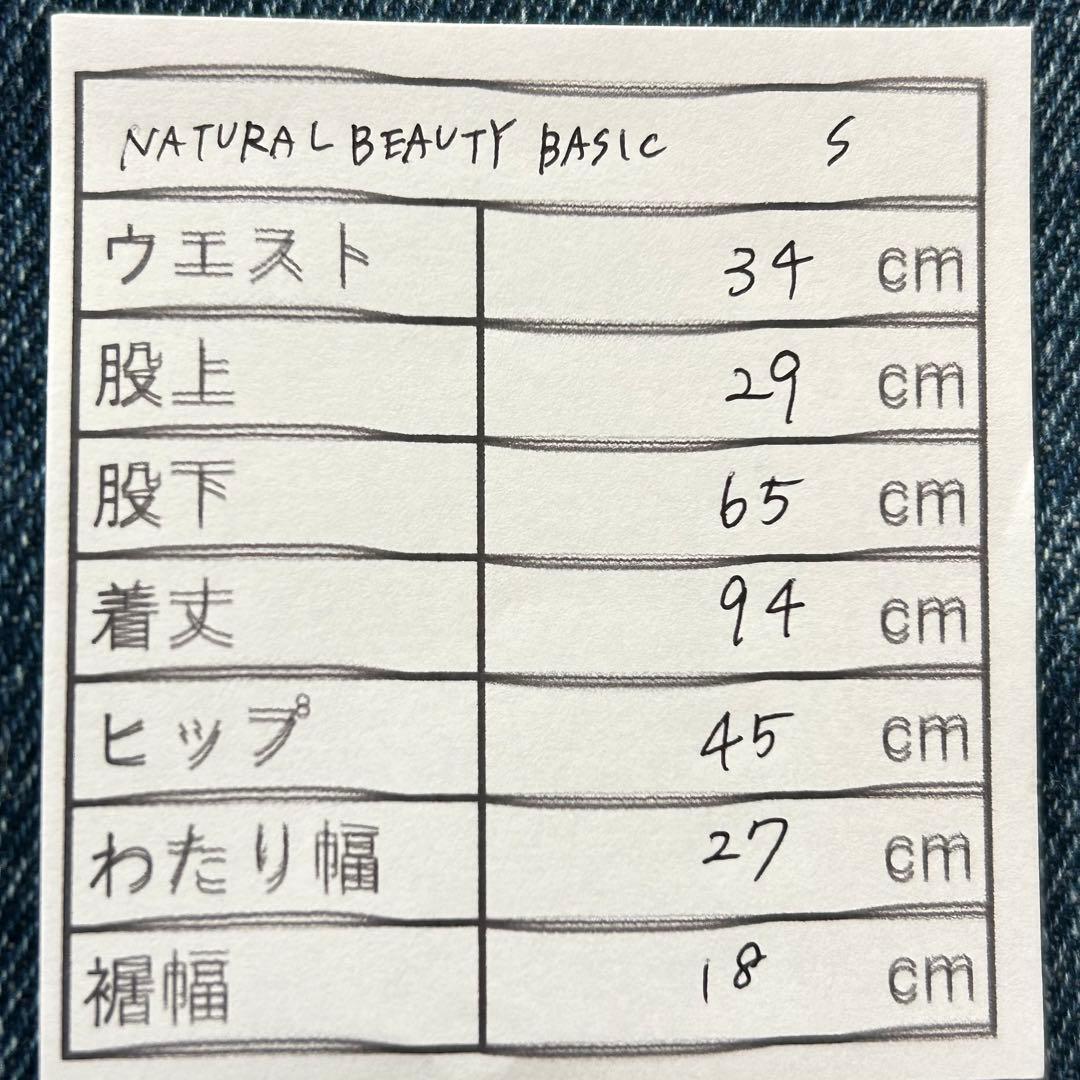 NATURAL BEAUTY BASIC S
ウエスト 34 cm
股上 29 cm
股下 65 cm
着丈 94 cm
ヒップ 45 cm
わたり幅 27 cm
裾幅 18 cm